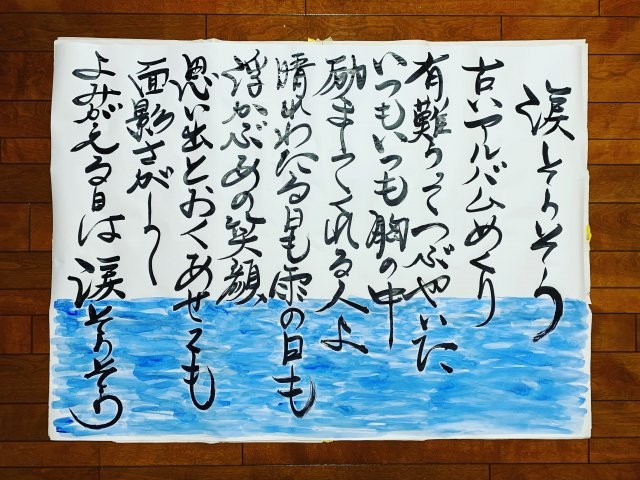 涙そうそう
古いアルバムめくり
有難うってつぶやいた
いつもいつも胸の中
励ましてくれる人よ
晴れわたる日も雨の日も
浮かぶあの笑顔
思い出とおくあせても
面影さがして
よみがえる日は涙そうそう